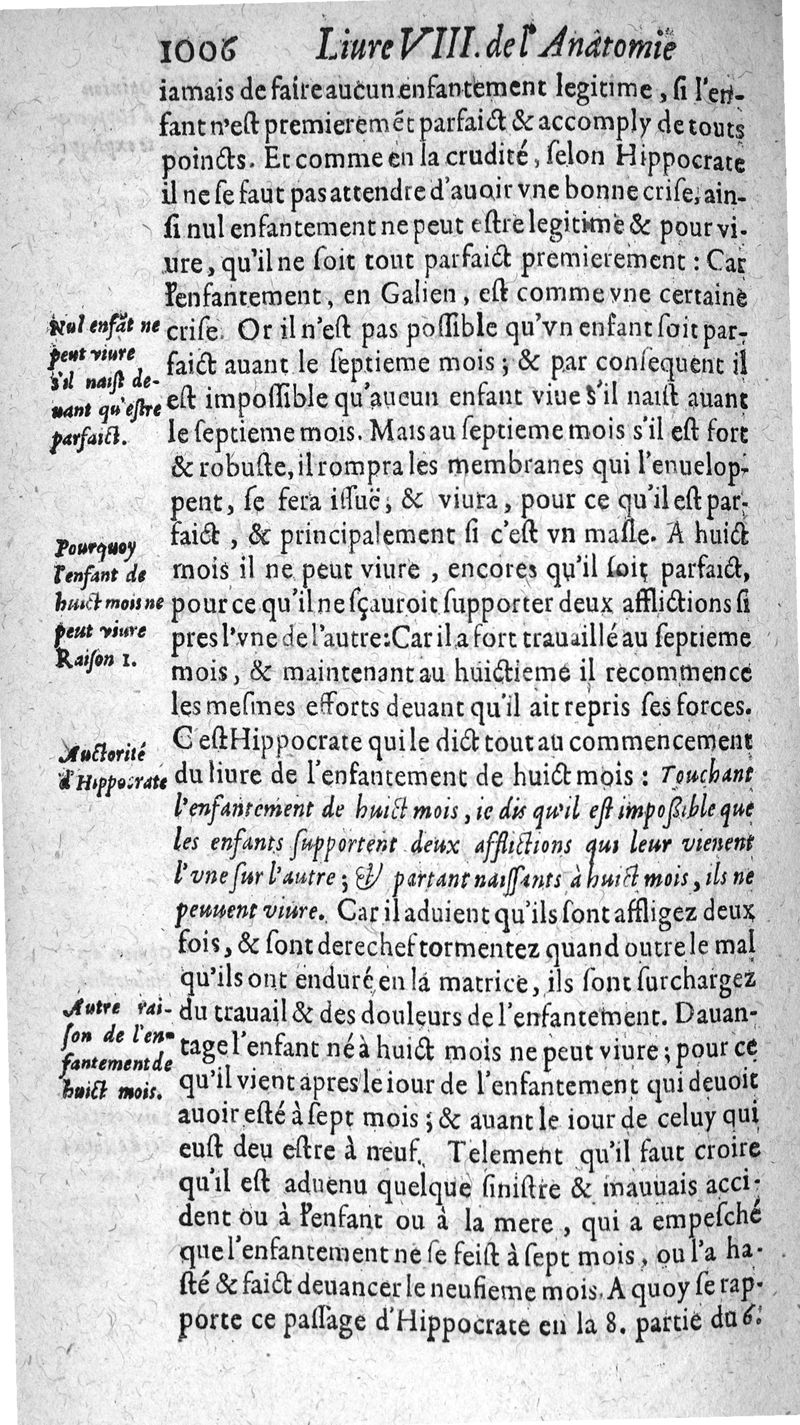 1006 Liure VIII. de l'Anatomie
iamais de faire aucun enfantement legitime, si l'en-
fant n'est premieremẽt parfaict & accomply de touts
poincts. Et comme en la crudité, selon Hippocrate
il ne se faut pas attendre d'auoir vne bonne crise, ain-
si nul enfantement ne peut estre legitime & pour vi-
ure, qu'il ne soit tout parfaict premierement : Car
l'enfantement, en Galien, est comme vne certaine
crise. Or il n'est pas possible qu'vn enfant soit par-
faict auant le septieme mois ; & par consequent il
est impossible qu'aucun enfant viue s'il naist auant
le septieme mois. Mais au septieme mois s'il est fort
& robuste, il rompra les membranes qui l'enuelop-
pent, se fera issuë, & viura, pour ce qu'il est par-
faict, & principalement si c'est vn masle. A huict
mois il ne peut viure, encores qu'il soit parfaict,
pour ce qu'il ne sçauroit supporter deux afflictions si
pres l'vne de l'autre: Car il a fort trauaillé au septieme
mois, & maintenant au huictieme il recommence
les mesmes efforts deuant qu'il ait repris ses forces.
C'est Hippocrate qui le dict tout au commencement
du liure de l'enfantement de huict mois : Touchant
l'enfantement de huict mois, ie dis qu'il est impossible que
les enfants supportent deux afflictions qui leur vienent
l'vne sur l'autre ; & partant naissants à huict mois, ils ne
peuuent viure. Car il aduient qu'ils sont affligez deux
fois, & sont derechef tormentez quand outre le mal
qu'ils ont enduré en la matrice, ils sont surchargez
du trauail & des douleurs de l'enfantement. Dauan-
tage l'enfant né à huict mois ne peut viure ; pour ce
qu'il vient apres le iour de l'enfantement qui deuoit
auoir esté à sept mois ; & auant le iour de celuy qui
eust deu estre à neuf. Telement qu'il faut croire
qu'il est aduenu quelque sinistre & mauuais acci-
dent ou à l'enfant ou à la mere, qui a empesché
que l'enfantement ne se feist à sept mois, ou l'a ha-
sté & faict deuancer le neufieme mois. A quoy se rap-
porte ce passage d'Hippocrate en la 8. partie du 6.
Nul enfãt ne
peut viure
s'il naist de-
uant qu'estre
parfaict.
Pourquoy
l'enfant de
huict mois ne
peut viure
Raison 1.
Auctorité
d'Hippocrate
Autre rai-
son de l'en-
fantement de
huict mois.